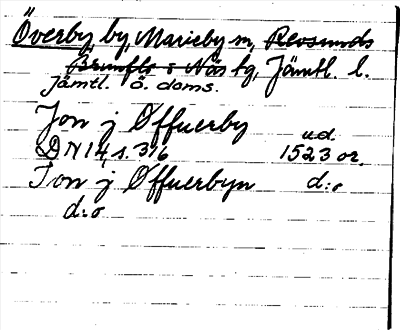 Överby, by, Marieby sn, Revsunds
Brunflo o Näs tg, Jämtl. l.
Jämtl. ö. doms.
Jon j Øffuerby
ud.
DN 14, s. 316 1523 or.
Ton j Øffuerbyn d:o
d:o